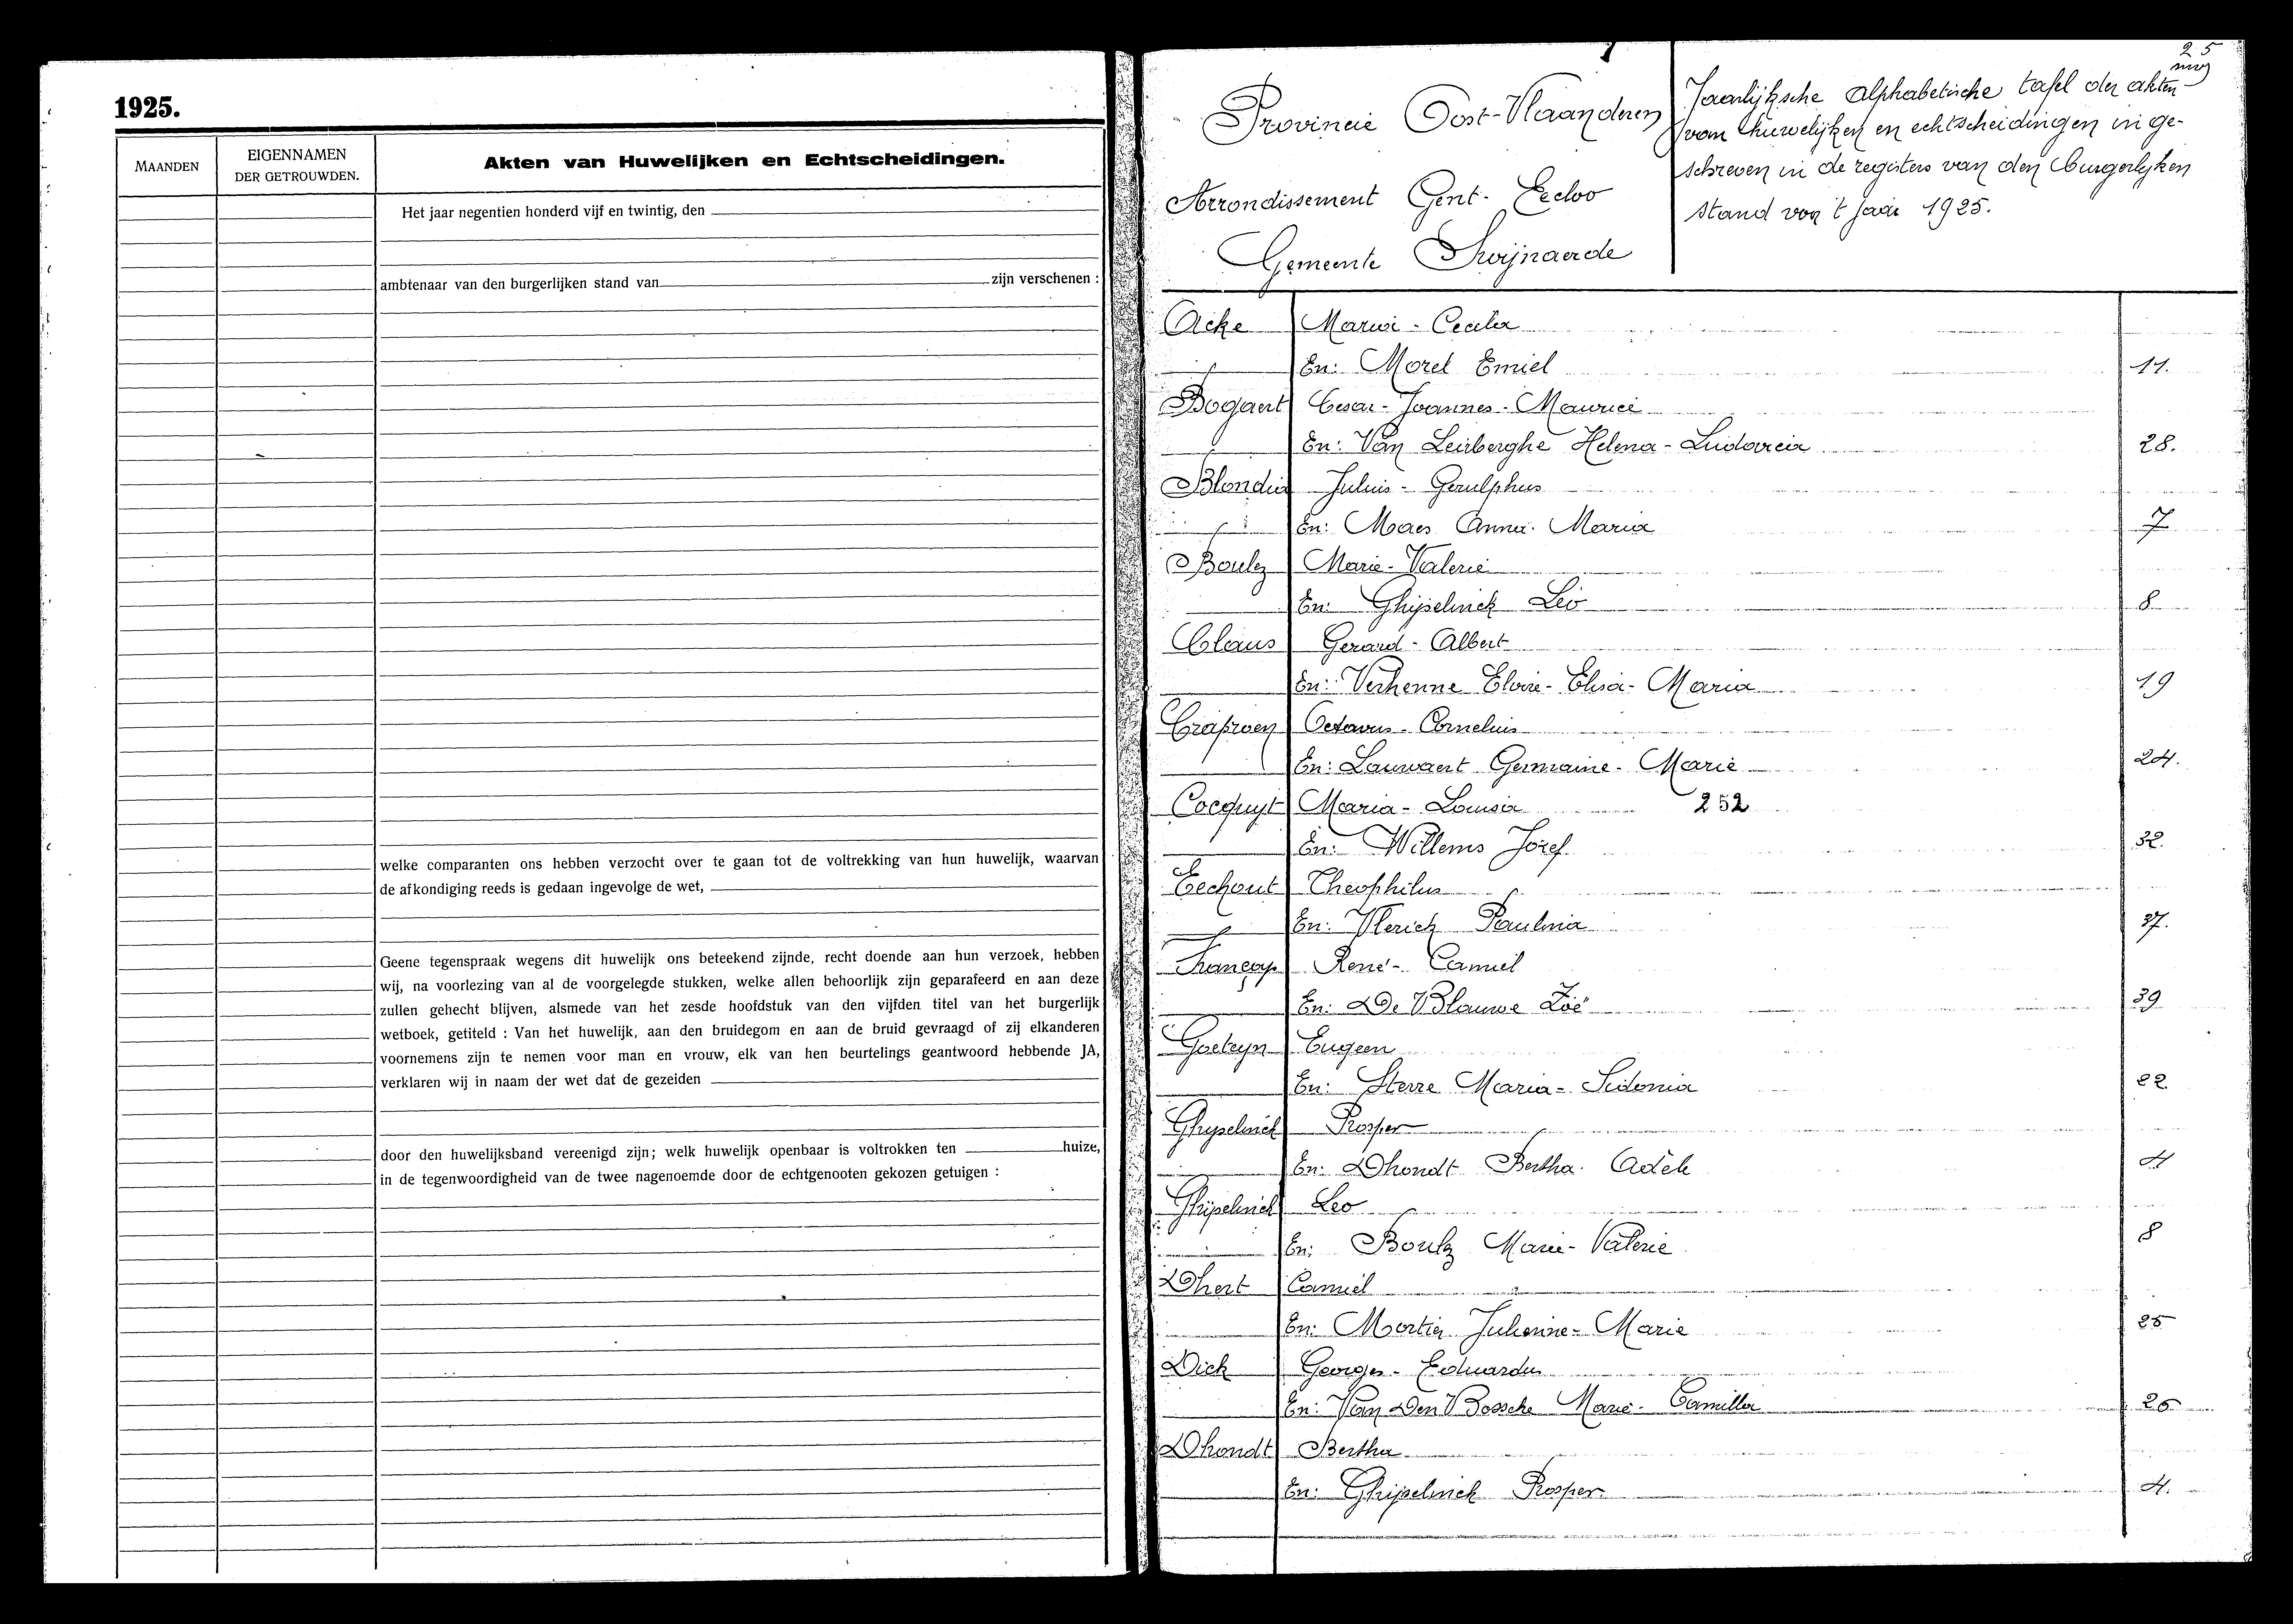 1925.
MAANDEN
EIGENNAMEN
DER GETROUWDEN.
Akten van Huwelijken en Echtscheidingen.
Het jaar negentien honderd vijf en twintig, den
ambtenaar van den burgerlijken stand van zijn verschenen :
welke comparanten ons hebben verzocht over te gaan tot de voltrekking van hun huwelijk, waarvan
de afkondiging reeds is gedaan ingevolge de wet,
Geene tegenspraak wegens dit huwelijk ons beteekend zijnde, recht doende aan hun verzoek, hebben
wij, na voorlezing van al de voorgelegde stukken, welke allen behoorlijk zijn geparafeerd en aan deze
zullen gehecht blijven, alsmede van het zesde hoofdstuk van den vijfden titel van het burgerlijk
wetboek, getiteld : Van het huwelijk, aan den bruidegom en aan de bruid gevraagd of zij elkanderen
voornemens zijn te nemen voor man en vrouw, elk van hen beurtelings geantwoord hebbende JA,
verklaren wij in naam der wet dat de gezeiden
door den huwelijksband vereenigd zijn; welk huwelijk openbaar is voltrokken ten huize,
in de tegenwoordigheid van de twee nagenoemde door de echtgenooten gekozen getuigen :
25
Provincie Oost-Vlaanderen
Arrondissement Gent-Eecloo
Gemeente Swijnaerde
Jaarlijksche alphabetische tafel der akten
van huwelijken en echtscheidingen in ge-
schreven in de registers van den burgerlyken
stand van 't jaar 1925.
Acke Maria-Cecilia
En: Morel Emiel 11.
Bogaert Cesar-Joannes-Maurice
En: Van Leuberghe Helena-Ludovica 28.
Blondia Julius-Gerulphus
En: Maes Anna-Maria 7
Boulez Marie-Valerie
En: Ghijselinck Leo 8
Claus Gerard-Albert
En: Verhenne Maria 19
Octavus-Cornelius
En: Lauwaert Germaine-Marie 24.
Cocquyt Maria-Louisa 252
En: Willems Jozef 32.
Eechout Theophilus
En: Vlerick Paulina 37.
René-Camiel
En: De Blauwe Zoë 39
Goeteyn Eugeen
En: Sterre Maria-Sidonia 22
Ghyselinck Prosper
En: Dhondt Bertha-Adele 4
Ghijselinck Leo
En: Boulz Marie-Valerie 8
Dhert Camiel
En: Mortier Julienne-Marie 25
Dick Georges-Eduardus
En: Van Den Bossche Marie-Camilla 26
Dhondt Bertha
En: Ghijselinck Prosper 4.